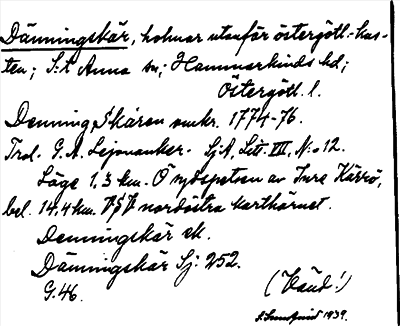 Dänningskär, holmar utanför östergötl.-kus-
ten; S:t Anna sn; Hammarkinds hd;
Östergötl. l.
Denning Skären omkr. 1774-76.
Trol. G.A. Lejonanker. SjA, Litt. VII, N:o 12.
Läge 1,3 km. O nydspetsen av Inre Kärrö,
bel. 14,4 km. VSV nordöstra karthörnet.
Denningskär ek.
Dänningskär Sj: 252.
G. 46.
(Vänd!)
1939.